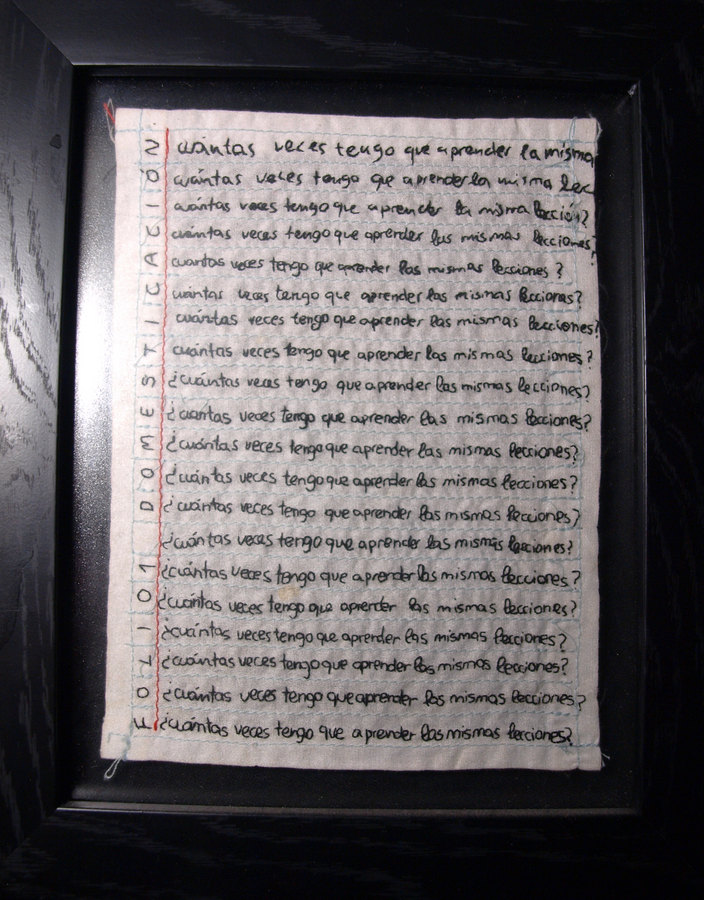 FOLIO 1 DOMESTICACIÓN
cuántas veces tengo que aprender la misma
cuántas veces tengo que aprender la misma lec
cuántas veces tengo que aprender la misma lección?
cuántas veces tengo que aprender las mismas lecciones?
cuantas veces tengo que aprender las mismas lecciones?
cuántas veces tengo que aprender las mismas lecciones?
cuántas veces tengo que aprender las mismas lecciones?
cuántas veces tengo que aprender las mismas lecciones?
¿cuántas veces tengo que aprender las mismas lecciones?
¿cuantas veces tengo que aprender las mismas lecciones?
¿cuántas veces tengo que aprender las mismas lecciones?
¿cuántas veces tengo que aprender las mismas lecciones?
¿cuántas veces tengo que aprender las mismas lecciones?
¿cuántas veces tengo que aprender las mismas lecciones?
¿cuántas veces tengo que aprender las mismas lecciones?
¿cuántas veces tengo que aprender las mismas lecciones?
¿cuántas veces tengo que aprender las mismas lecciones?
¿cuántas veces tengo que aprender las mismas lecciones?
¿cuántas veces tengo que aprender las mismas lecciones?
¿cuántas veces tengo que aprender las mismas lecciones?